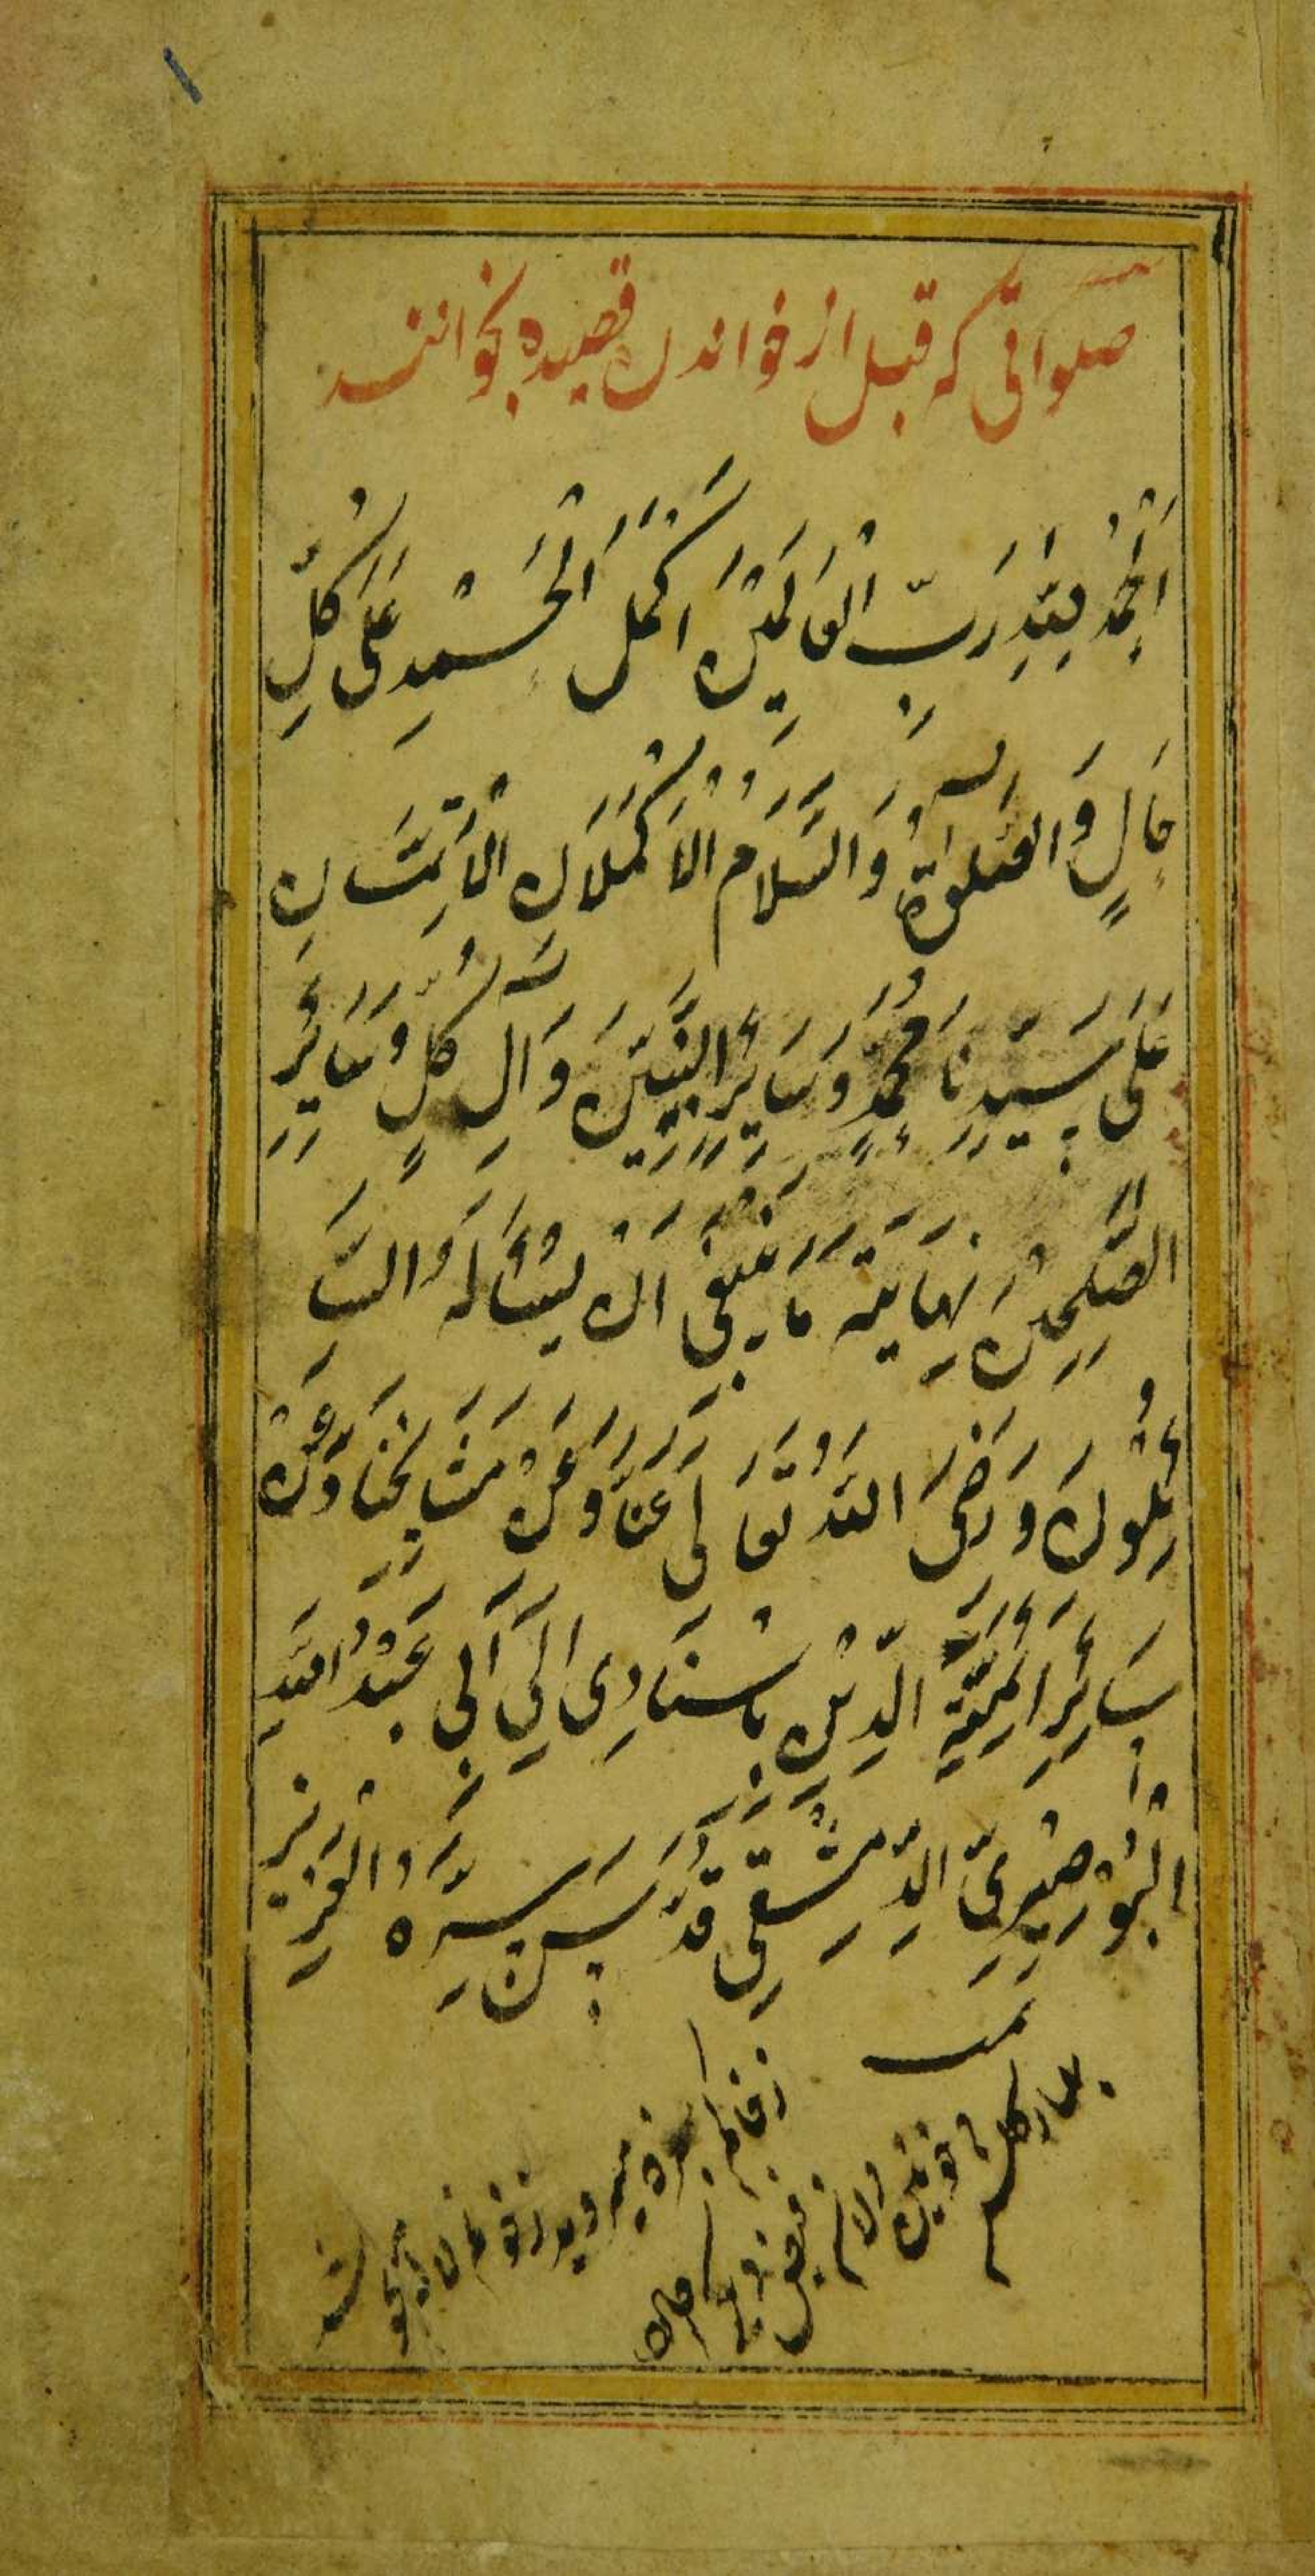 صلواتی که قبل از خواندن قصیده بخوانند
اَلْحَمْدُ لِلّٰهِ رَبِّ الْعَالَمِیْنَ اَکْمَلَ الْحَمْدِ عَلَی کُلِّ
حَالٍ وَ الصَّلٰوةُ وَ السَّلَامُ الْاَکْمَلَانِ الْاَتَمَّانِ
عَلَی سَیِّدِنَا مُحَمَّدٍ وَ سَائِرِ النَّبِیِّیْنَ وَ اٰلِ کُلٍّ وَ سَائِرِ
الصّٰلِحِیْنَ نِهَایَةَ مَا یَنْبَغِی اَنْ یَسْئَلَهُ السَّا
ئِلُوْنَ وَ رَضِیَ اللّٰهُ تَعَالَی عَنَّا وَ عَنْ مَشَایِخِنَا وَ عَنْ
سَائِرِ اَئِمَّةِ الدِّیْنِ بِاسْنَادِی اِلَی اَبِی عَبْدِ اللّٰهِ
الْبُوْصِیْرِیِّ الدِّمَشْقِی قَدَّسَ سِرَّهُ الْعَزِیْز